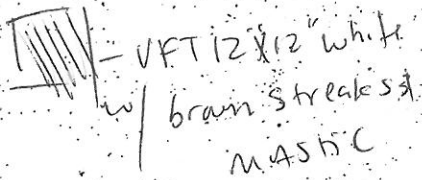 - VFT 12"x12" white
w/ brown streaks &
MASTIC